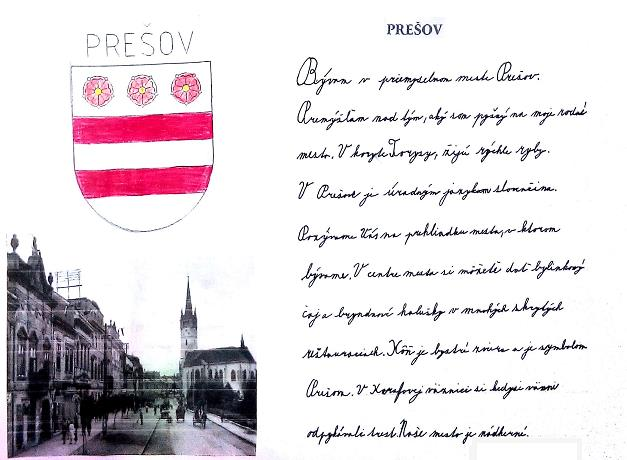 PREŠOV
PREŠOV
Bývam v priemyselnom meste Prešov.
Premýšľam nad tým, aký som pyšný na moje rodné
mesto. V koryte Torysy, žijú rýchle ryby.
V Prešove je úradným jazykom slovenčina.
Pozývame Vás na prehliadku mesta, v ktorom
bývame. V centre mesta si môžete dať bylinkový
čaj a bryndzové halušky v mnohých skrytých
reštauráciach. Kôň je bystré zviera a je symbolom
Prešova. V Karafovej väznici si kedysi väzni
odpykávali trest. Naše mesto je nádherné.